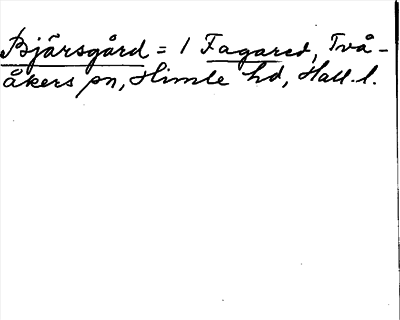 Bjärsgård = 1 Fagared, Två-
åkers pn, Himle hd, Hall. l.